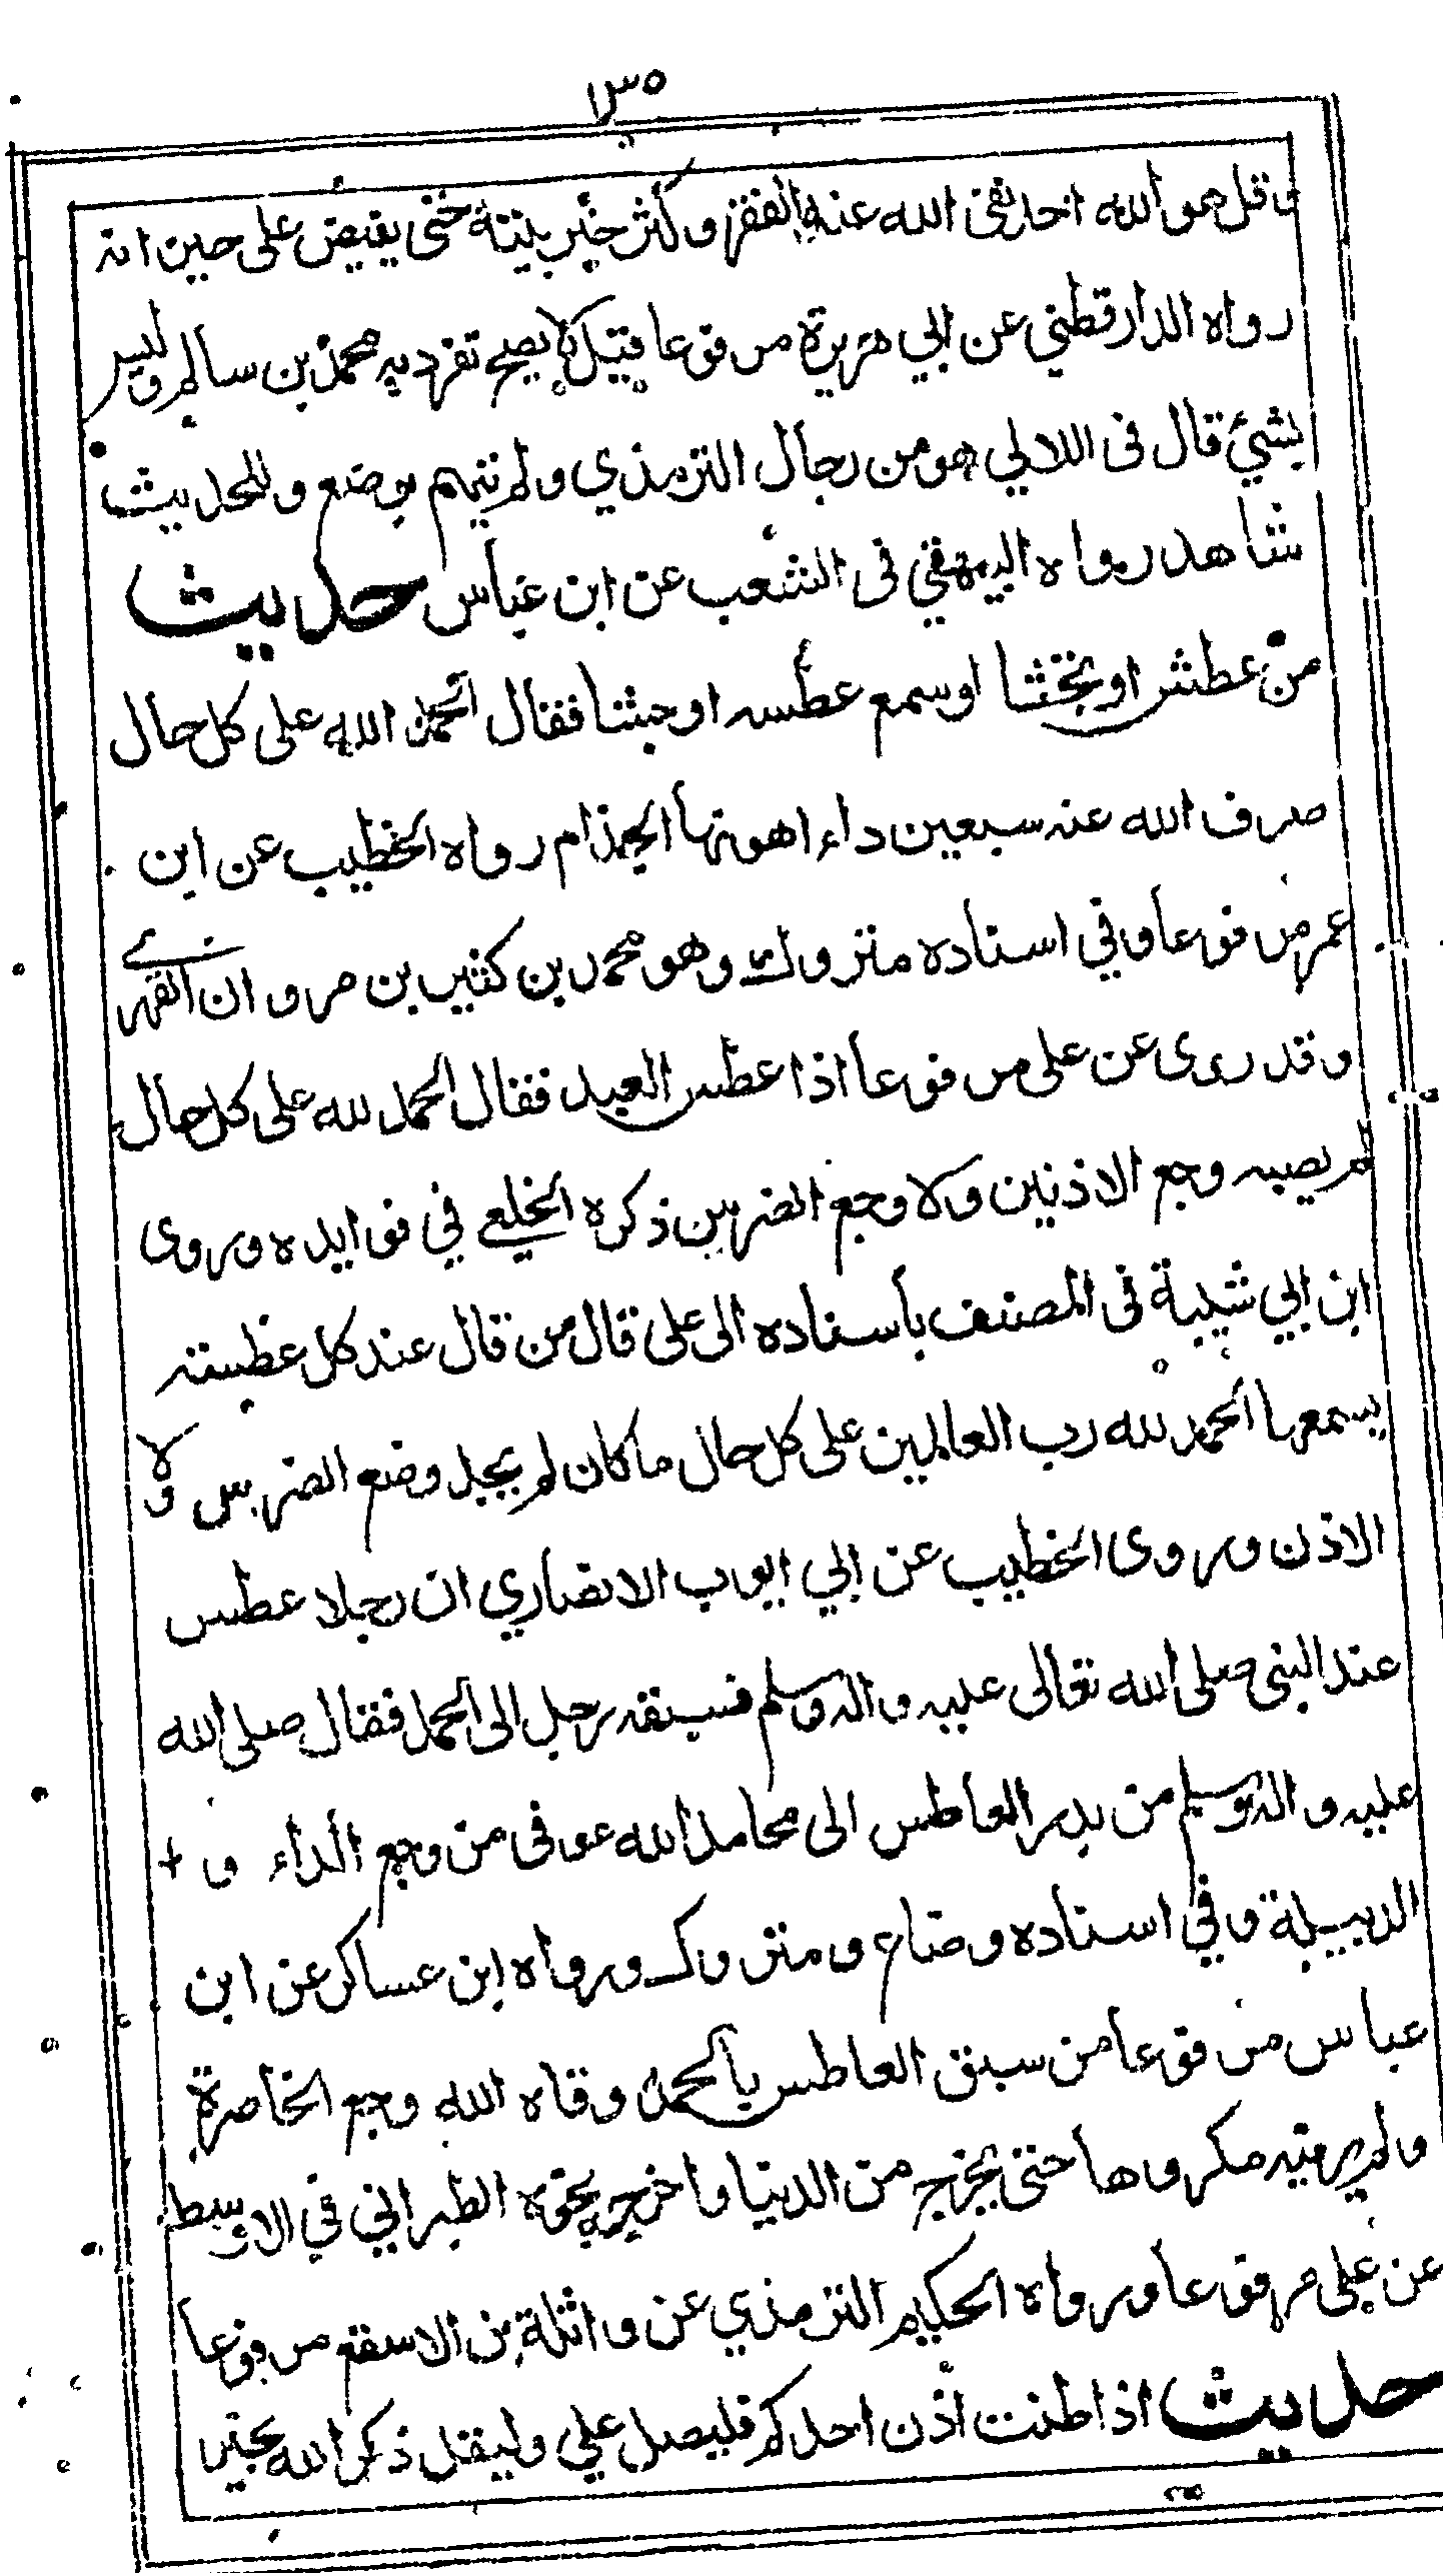 ١٣٥
وقل هو الله احد نفى الله عنه الفقر وكثر خير بيته حتى يفيض على جيرانه
رواه الدارقطني عن ابي هريرة مرفوعا قيل لا يصح تفرد به محمد بن سالم وليس
بشيئ قال فى اللالي هو من رجال الترمذي ولم يتهم بوضع وللحديث
شاهد رواه البيهقي فى الشعب عن ابن عباس حديث
من عطش او تجشا او سمع عطسه او جشا فقال الحمد الله على كل حال
صرف الله عنه سبعين داء اهونها الجذام رواه الخطيب عن ابن
عمر مرفوعا وفي اسناده متروك وهو محمد بن كثير بن مروان الفهري
وقد روى عن على مرفوعا اذا عطس العبد فقال الحمد لله على كل حال
لم يصبه وجع الاذنين ولا وجع الضرس ذكره الخلعي في فوايده وروى
ابن ابي شيبة فى المصنف باسناده الى على قال من قال عند كل عطسته
يسمعها الحمد لله رب العالمين على كل حال ما كان لم يجد وضع الضرس ولا
الاذن وروى الخطيب عن ابي ايوب الانصاري ان رجلا عطس
عند النبى صلى الله تعالى عليه واله وسلم فسبقه رجل الى الحمد فقال صلى الله
عليه واله وسلم من بدر العاطس الى محامد الله عوفى من وجع الداء و
الدبيلة وفي اسناده وضاع ومتروك ورواه ابن عساكر عن ابن
عباس مرفوعا من سبق العاطس بالحمد وقاه الله وجع الخاصرة
ولم ير فيه مكروها حتى يخرج من الدنيا واخرجه بحوه الطبراني في الاوسط
عن على مرفوعا ورواه الحكيم الترمذي عن واثلة بن الاسقع مرفوعا
حديث اذا طنت اذن احدكم فليصل علي وليقل ذكر الله بخير